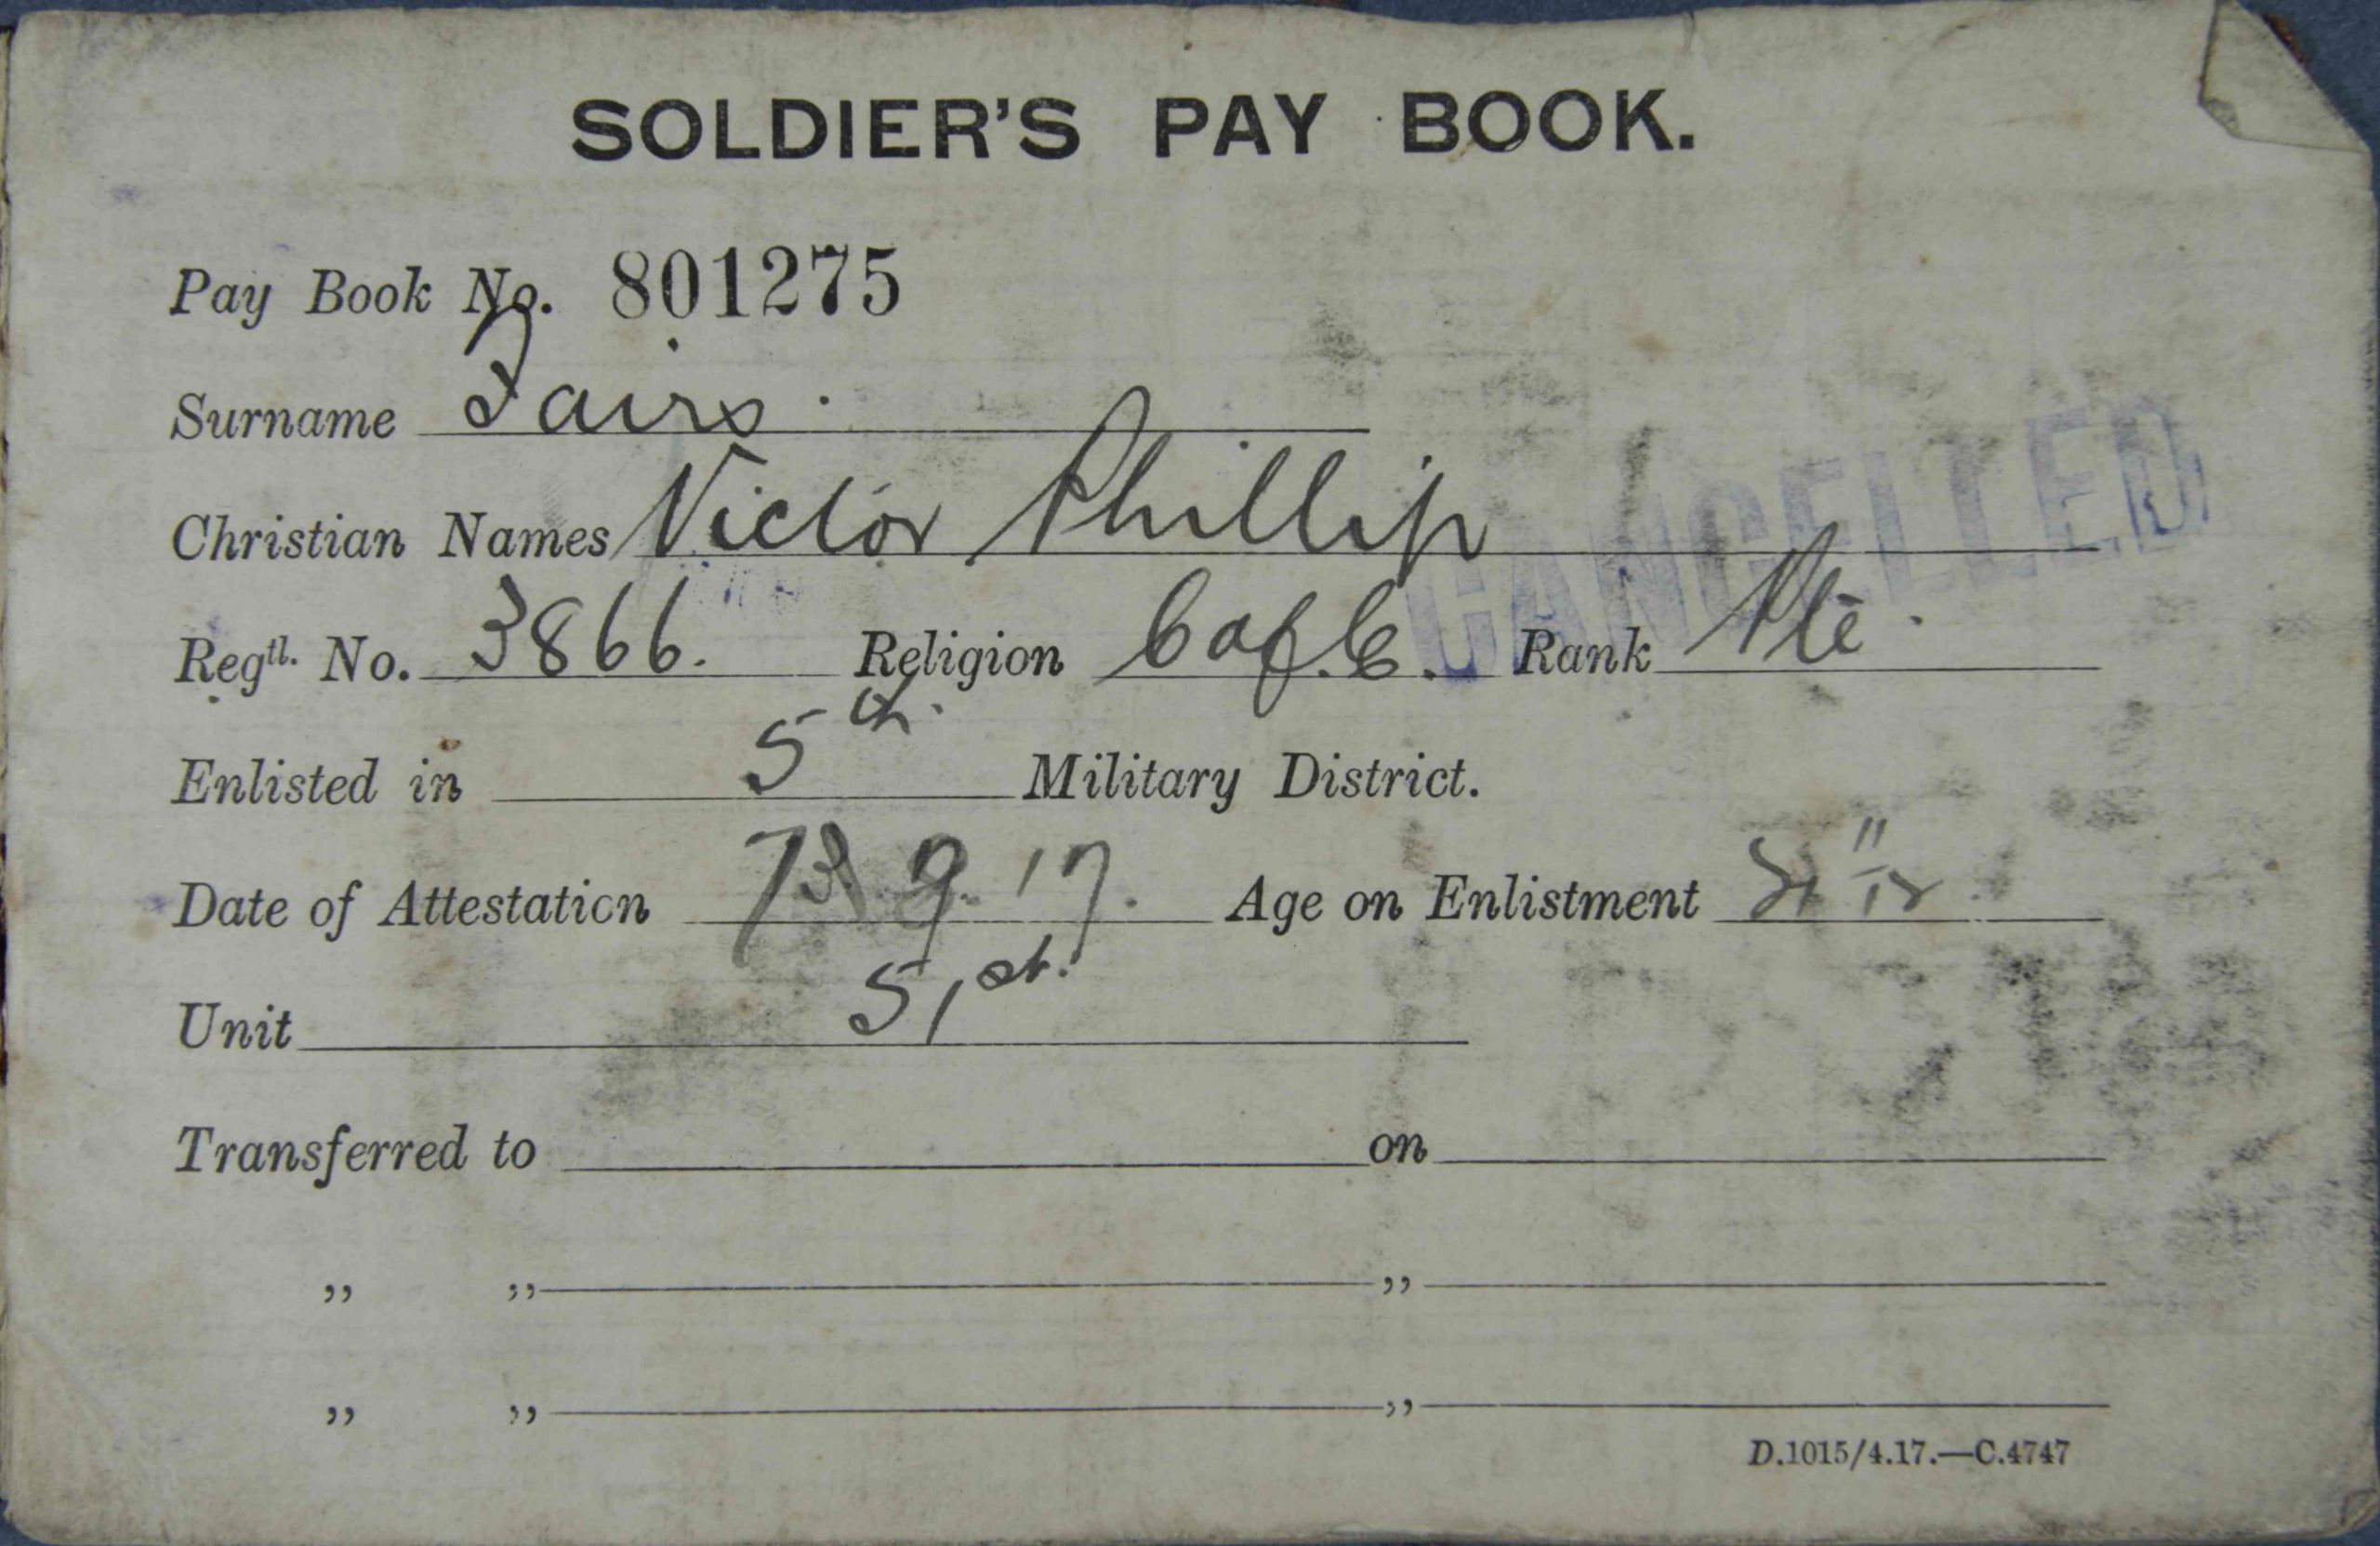 SOLDIER'S PAY BOOK.
Pay Book No. 801275
Surname Fairs
Christian Names Victor Phillip
CANCELLED
Regtl. No. 3866. Religion C of E. Rank Pte.
Enlisted in 5th. Military District.
Date of Attestation 9. 17. Age on Enlistment
Unit 51st.
Transferred to on
,, ,, ,,
,, ,, ,,
D.1015/4.17.—C.4747